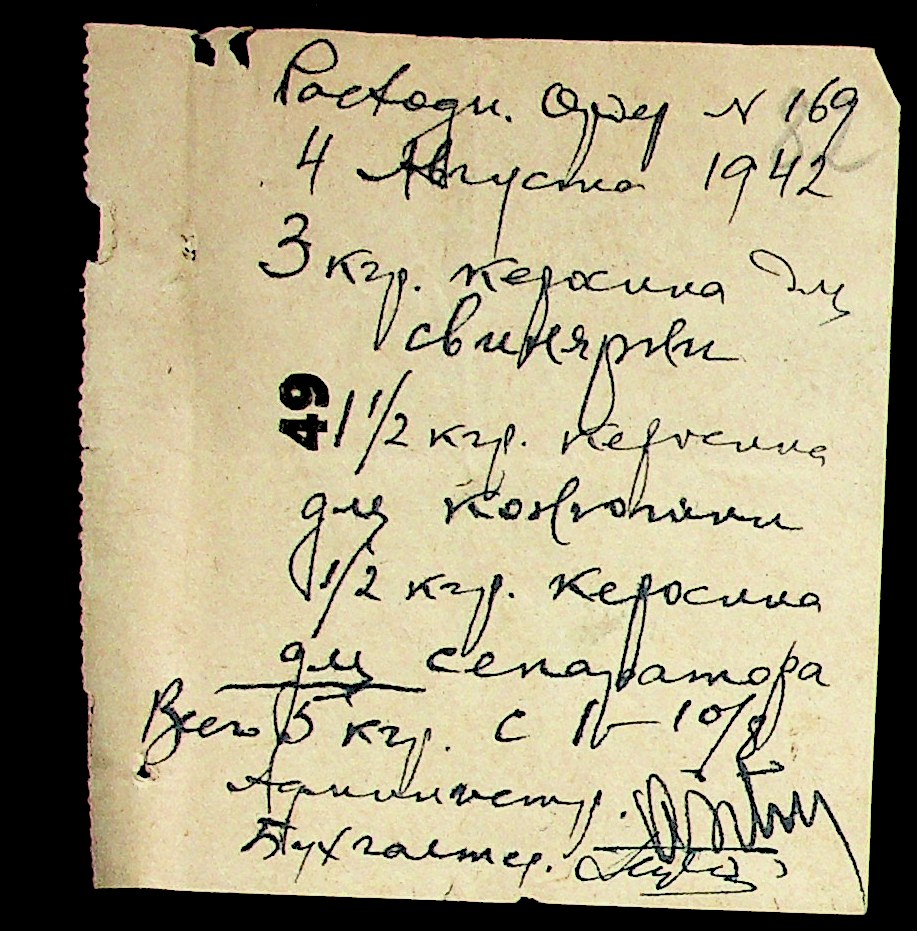 Расходн. Ордер N 169
4 Августа 1942
3 кгр. керосина для
свинярни
49
1 1/2 кгр. керосина
для конюшни
1/2 кгр. керосина
для сепаратора
Всего 5 кгр. с 1 – 10/8
Администр.
Бухгалтер.